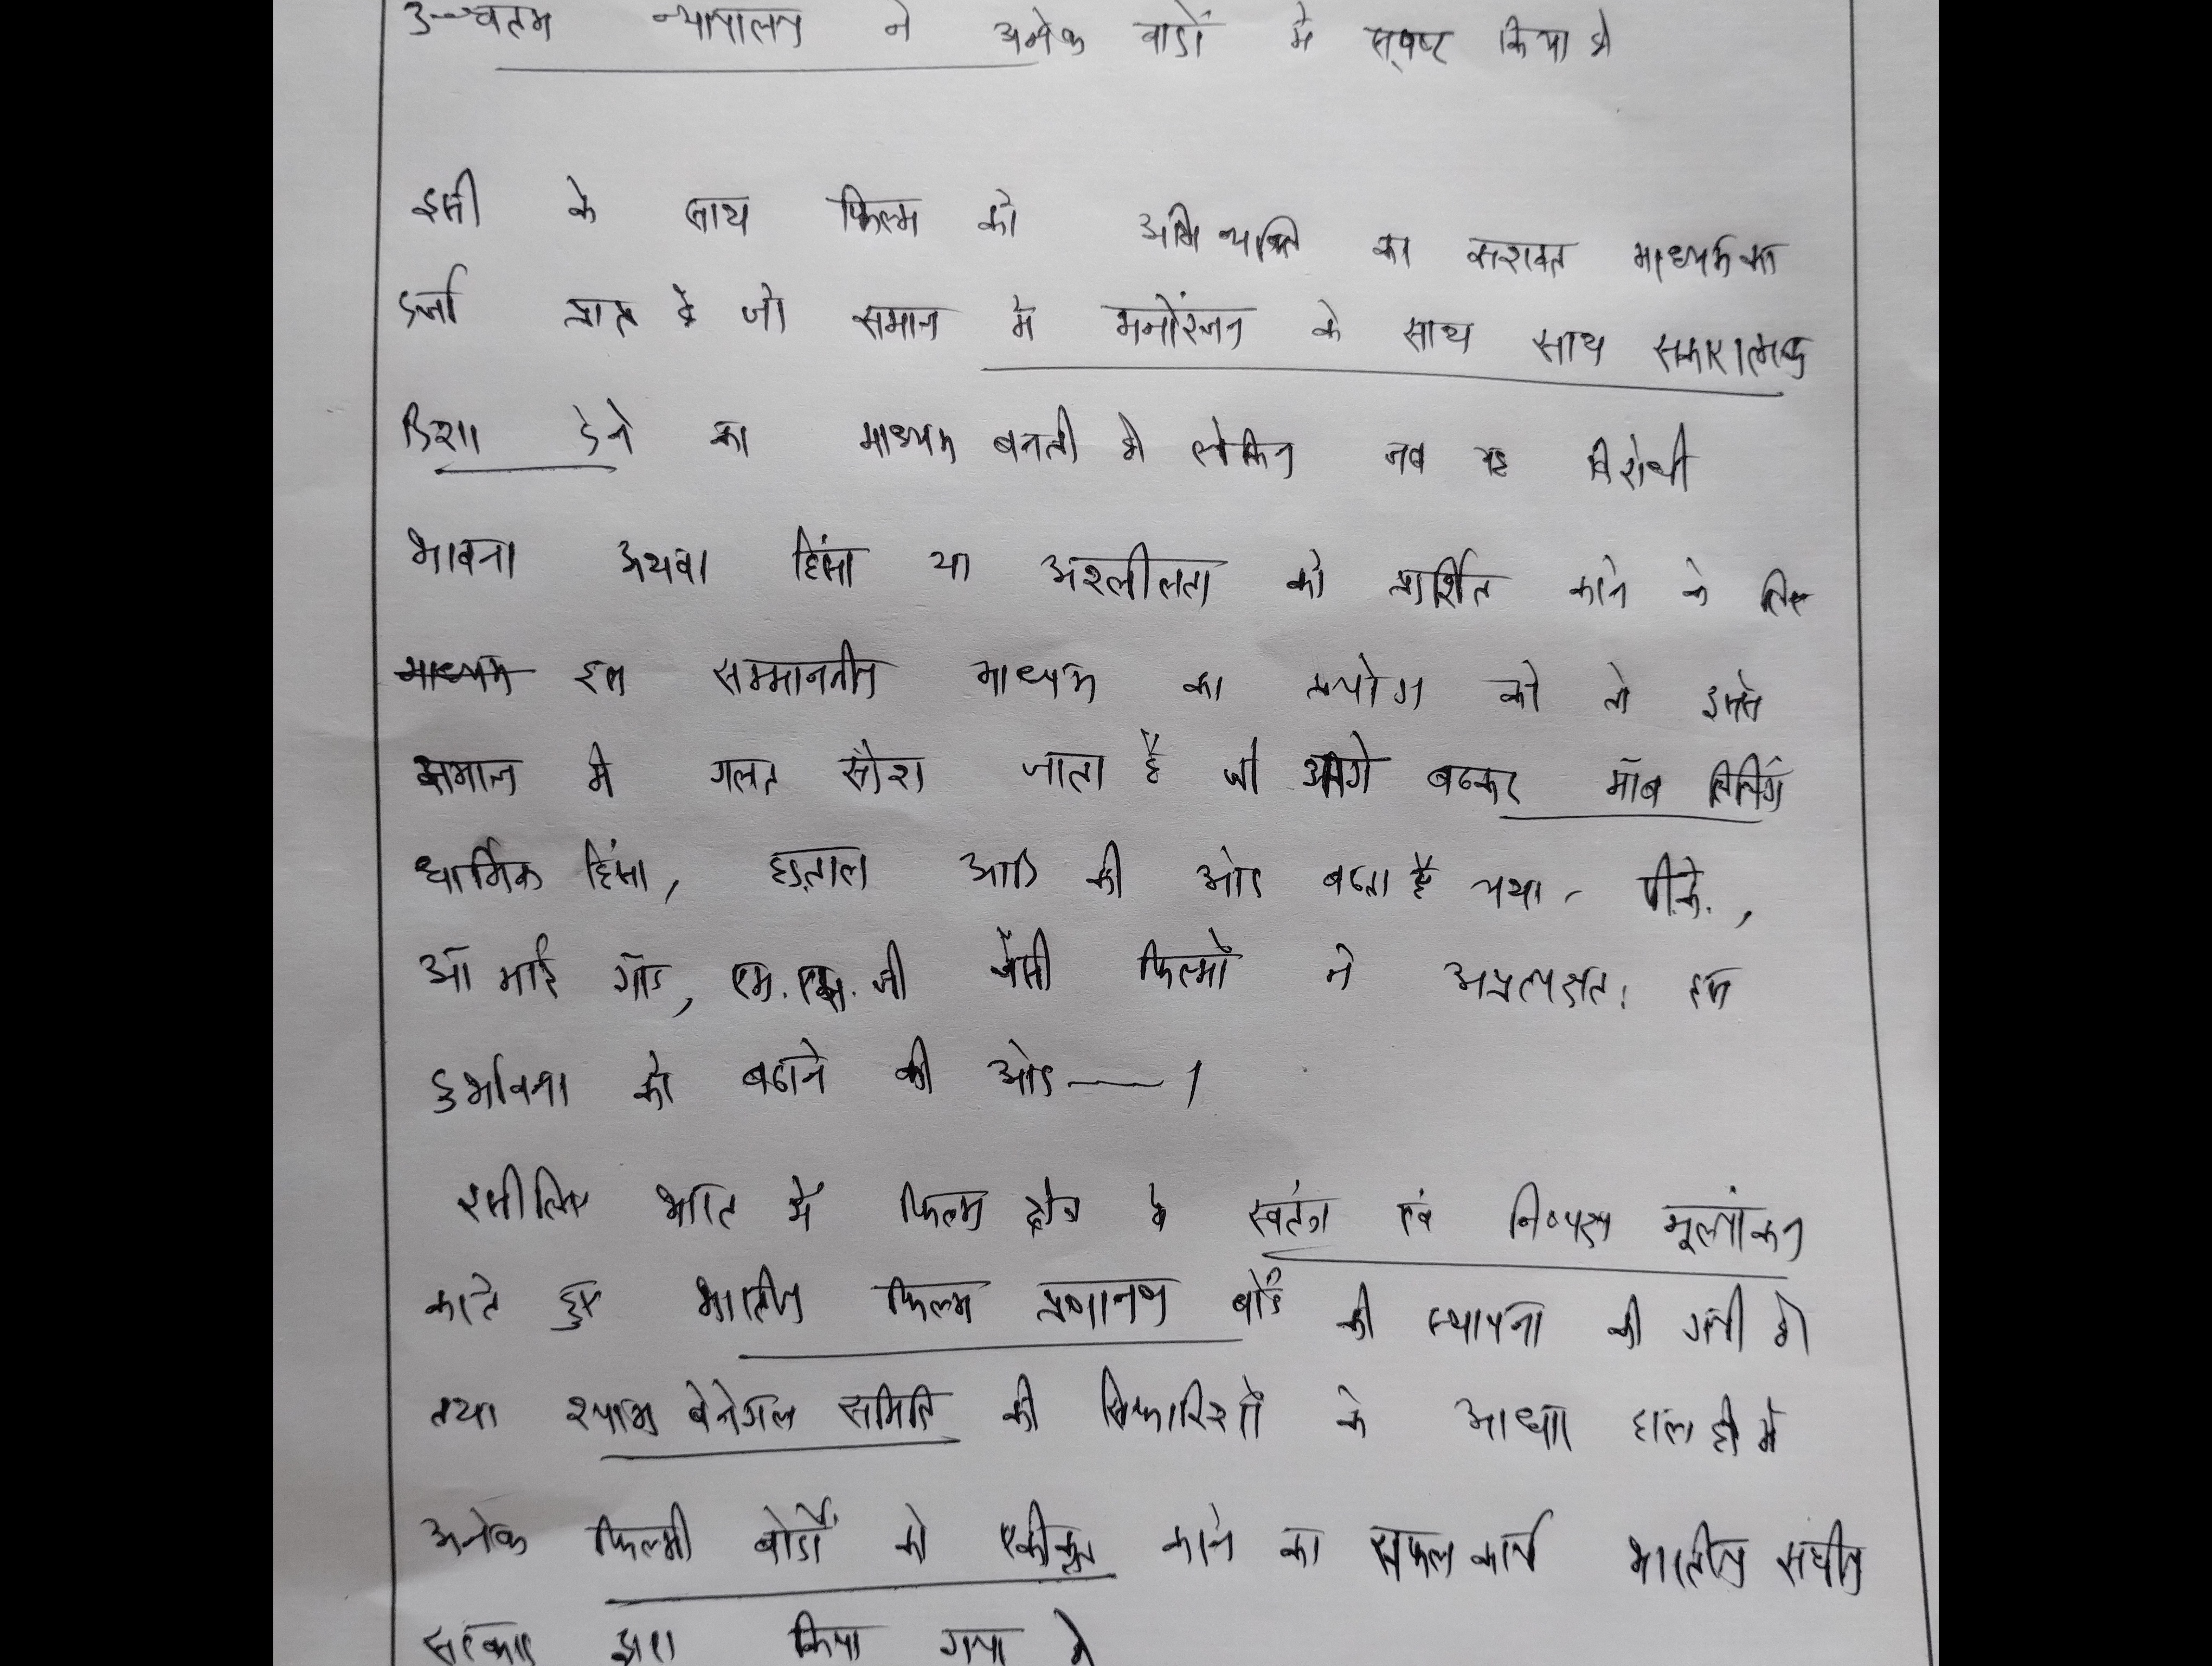 उच्चतम न्यायालय ने अनेक वादों में स्पष्ट किया है
इसी के साथ फिल्म को अभिव्यक्ति का सशक्त माध्यम का
दर्जा प्राप्त है जो समाज में मनोरंजन के साथ साथ सकारात्मक
दिशा देने का माध्यम बनती है लेकिन जब यह विरोधी
भावना अथवा हिंसा या अश्लीलता को प्रदर्शित करने के लिए
माध्यम इस सम्माननीय माध्यम का प्रयोग करे तो इससे
समाज में गलत संदेश जाता है जो आगे बढकर मॉब लिंचिंग
धार्मिक हिंसा, हड़ताल आदि की ओर बढता है यथा - पी.के.,
ओ माई गॉड, एम.एस.जी जैसी फिल्मों ने अप्रत्यक्षत: इस
दुर्भावना को बढाने की ओर —— ।
इसीलिए भारत में फिल्म क्षेत्र के स्वतंत्र एवं निष्पक्ष मूल्यांकन
करते हुए भारतीय फिल्म प्रमाणन बोर्ड की स्थापना की गयी है
तथा श्याम बेनेगल समिति की सिफारिशों के आधार हाल ही में
अनेक फिल्मी बोर्डों को एकीकृत करने का सफल कार्य भारतीय संघीय
सरकार द्वारा किया गया है